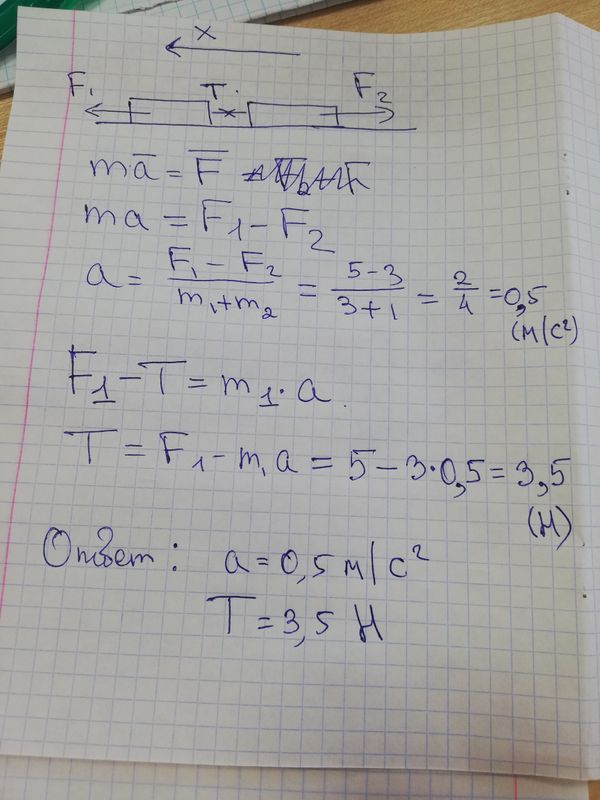 x
F₁ T F₂
ma̅ = F̅
ma = F₁ - F₂
a = (F₁ - F₂)/(m₁+m₂) = (5-3)/(3+1) = 2/4 = 0,5
(м/с²)
F₁ - T = m₁·a.
T = F₁ - m₁a = 5 - 3·0,5 = 3,5
(Н)
Ответ: a = 0,5 м/с²
T = 3,5 Н